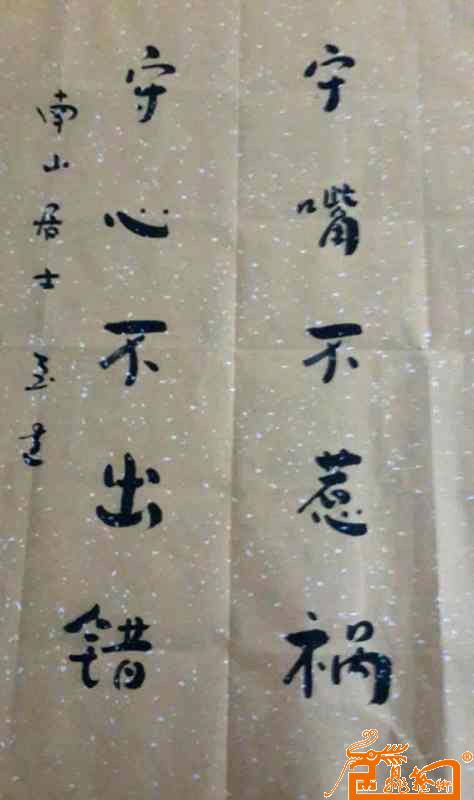 守嘴不惹祸
守心不出错
南山居士